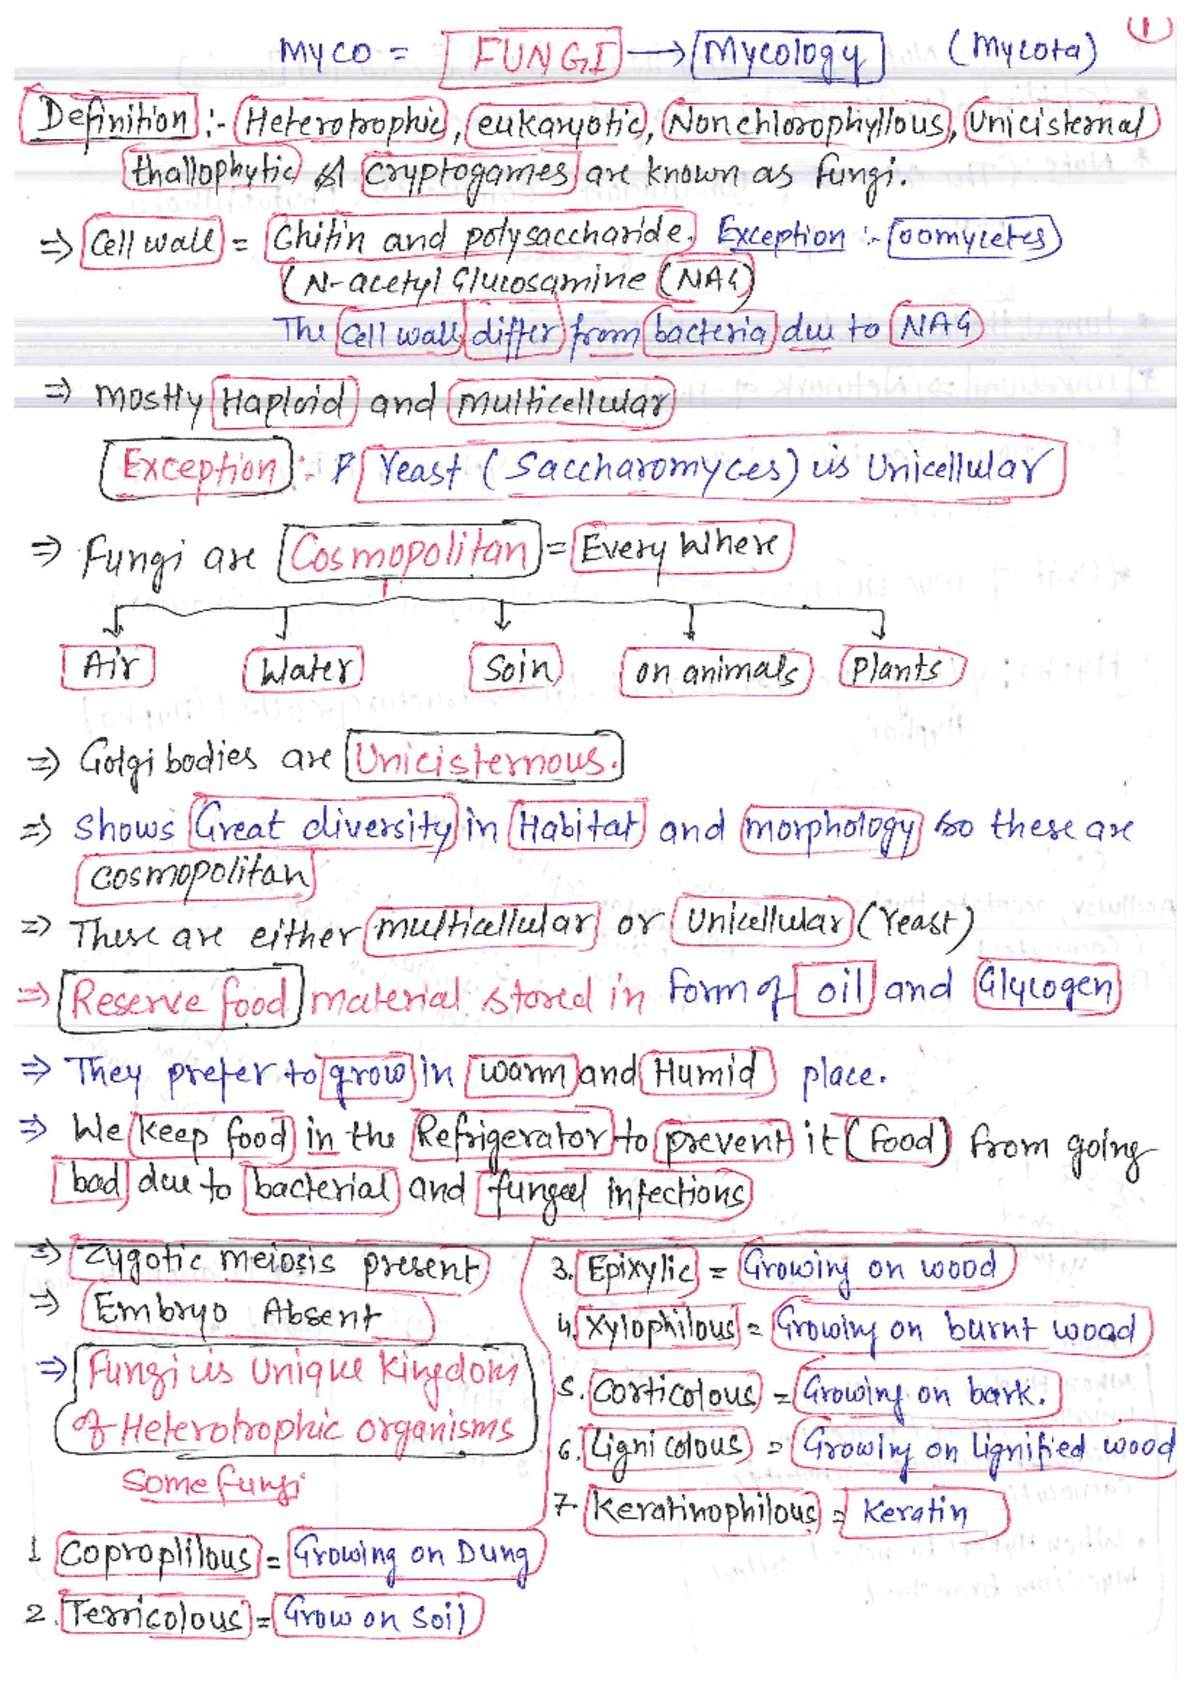 1
MYCO = FUNGI → Mycology (Mycota)
Definition :- Heterotrophic, eukaryotic, Nonchlorophyllous, Unicisternal
thallophytic cryptogames are known as fungi.
⇒ Cell wall = Chitin and polysaccharide. Exception :- oomycetes
(N-acetyl Glucosamine (NAG)
The Cell wall differ from bacteria due to NAG
⇒ mostly Haploid and multicellular
Exception :- Yeast (Saccharomyces) is Unicellular
⇒ Fungi are Cosmopolitan = Every Where
Air Water Soin on animals Plants
⇒ Golgi bodies are Unicisternous.
⇒ Shows Great diversity in Habitat and morphology so these are
cosmopolitan
⇒ These are either multicellular or Unicellular (Yeast)
⇒ Reserve food material stored in form of oil and Glycogen
⇒ They prefer to grow in warm and Humid place.
⇒ We keep food in the Refrigerator to prevent it (food) from going
bad due to bacterial and fungal infections
⇒ Zygotic meiosis present
⇒ Embryo Absent
⇒ Fungi is Unique Kingdom
of Heterotrophic organisms
Some fungi
1 Coproplilous = Growing on Dung
2. Terricolous = Grow on Soil
3. Epixylic = Growing on wood
4. Xylophilous = Growing on burnt wood
5. Corticolous = Growing on bark.
6. Lignicolous = Growing on Lignified wood
7. Keratinophilous = Keratin